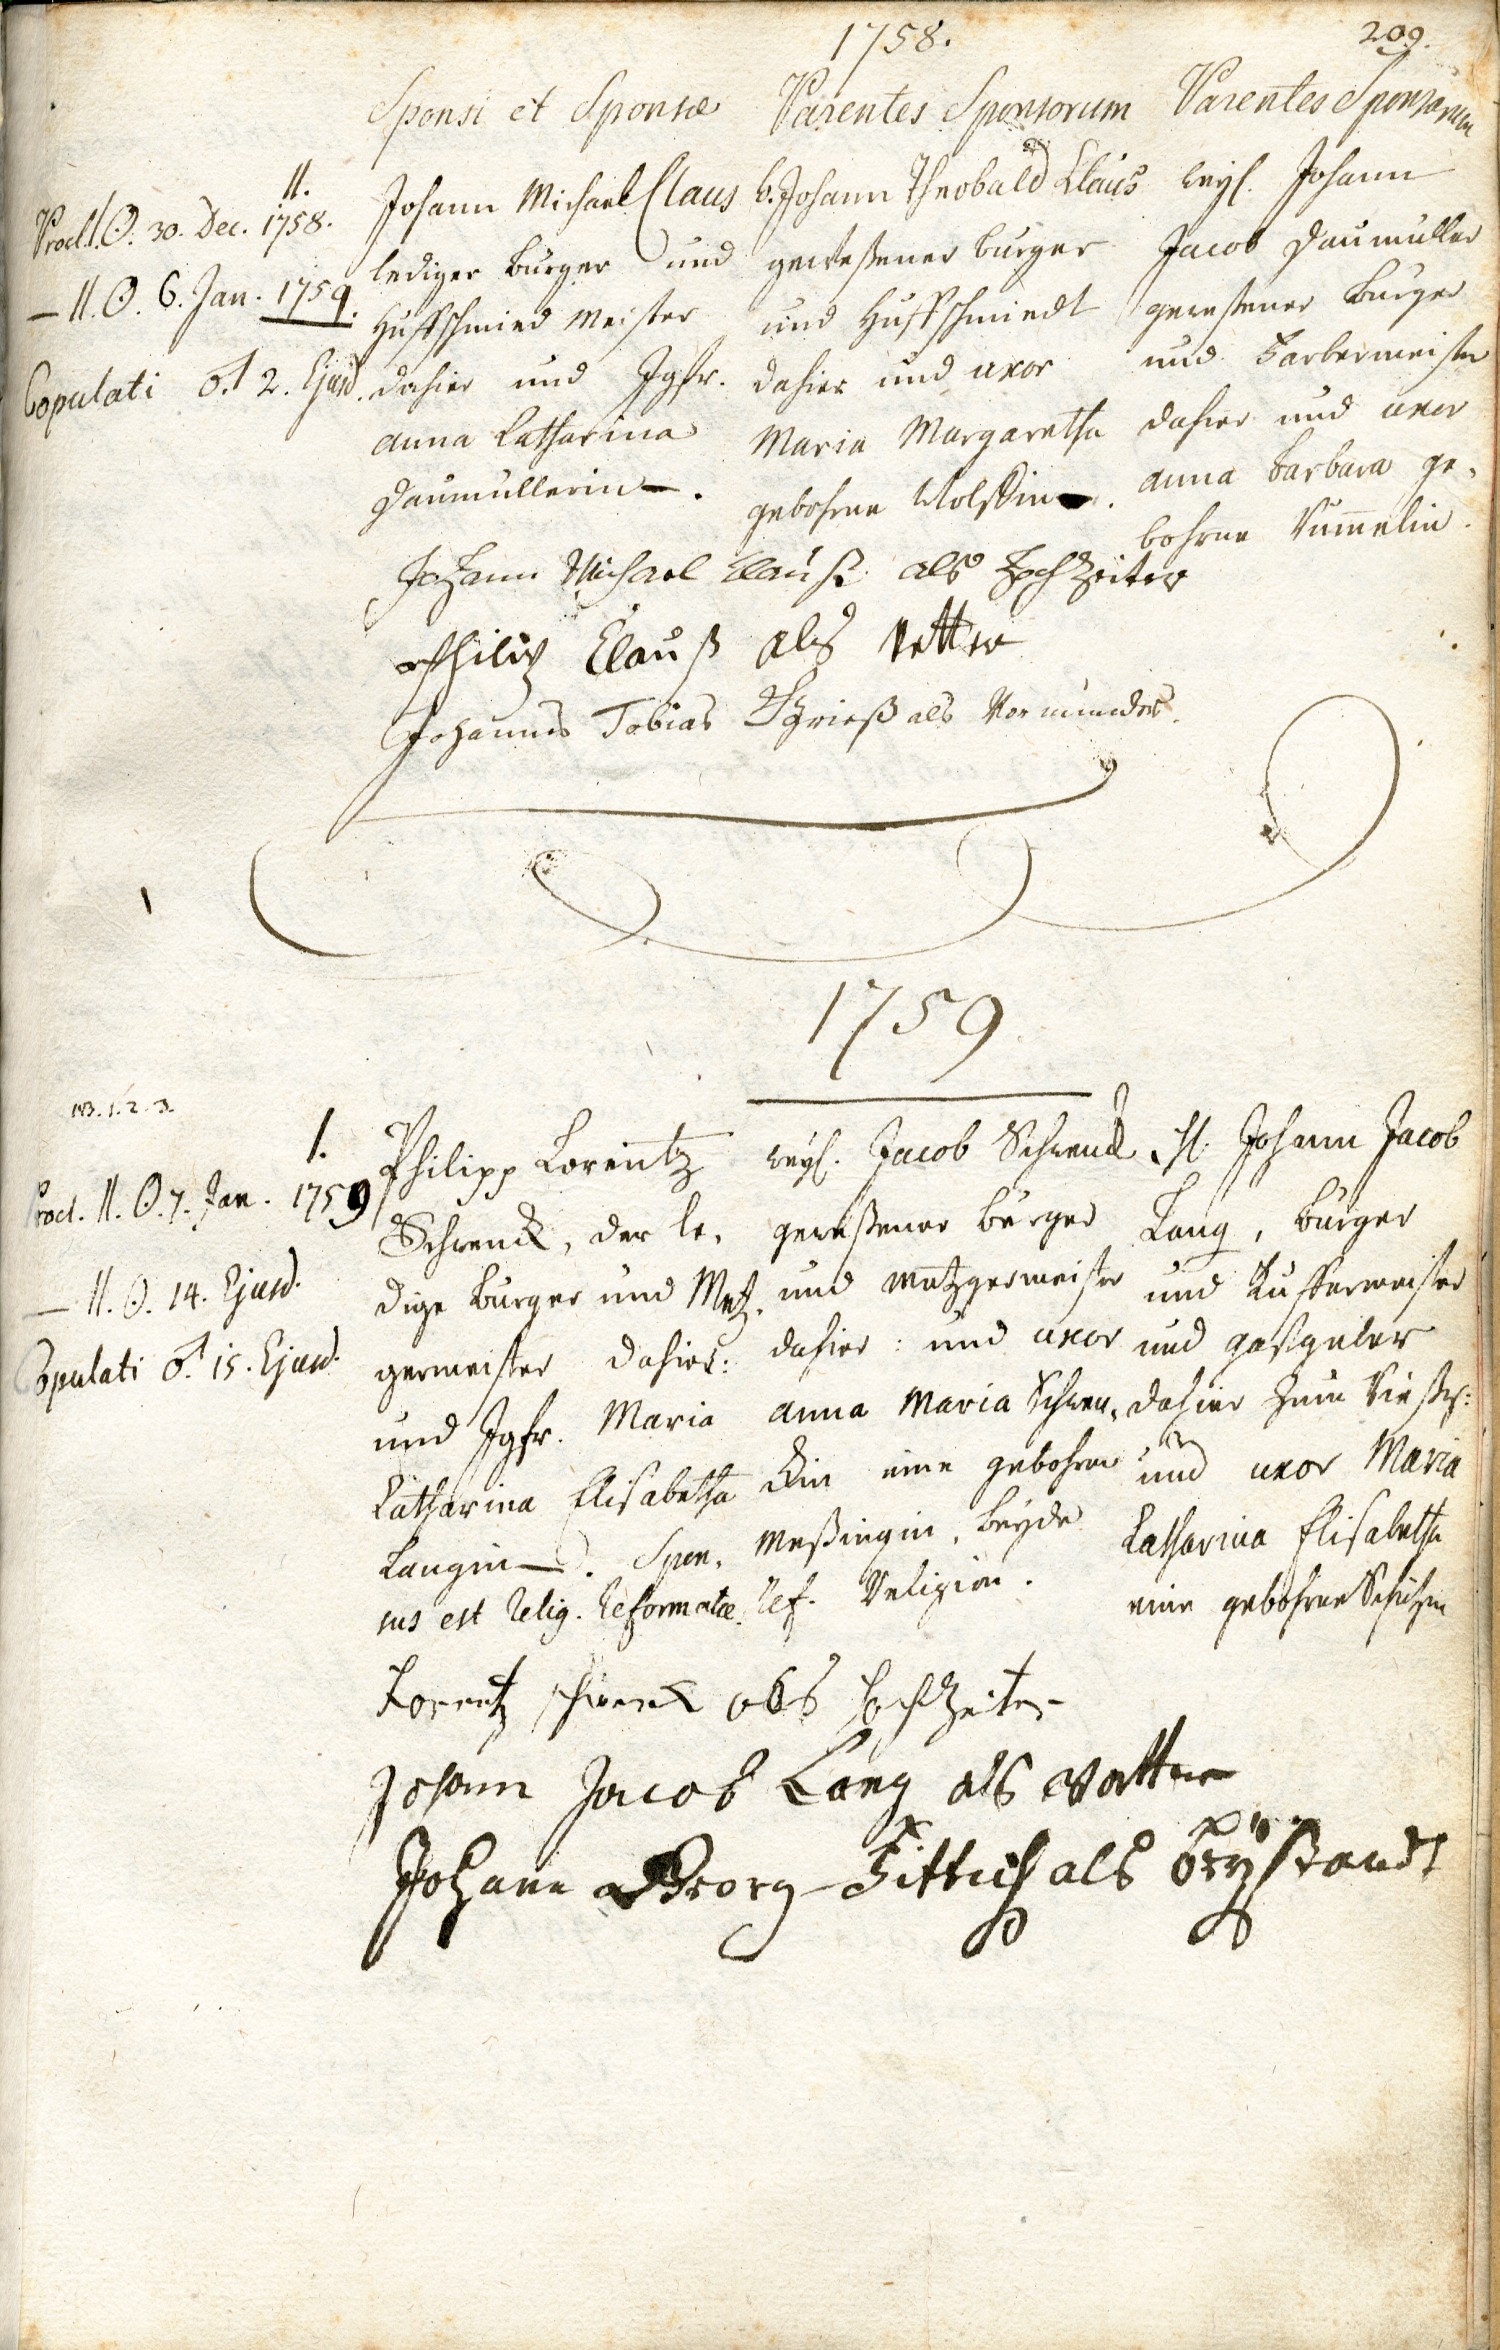 1758.
209.
Sponsi et Sponsæ
Parentes Sponsorum
Parentes Sponsarum
11.
Procl. I. ☉. 30. Dec. 1758.
— II. ☉. 6. Jan. 1759.
Copulati ♂. 2. Ejusd.
Johann Michael Claus
lediger burger und
Huffschmied Meister
dahier und Jgfr.
anna Catharina
Daumüllerin —.
Johann Theobald Claus
geweßener burger
und Huffschmiedt
dahier und uxor
Maria Margaretha
gebohrne
weyl. Johann
Jacob Daumüller
geweßener burger
und
dahier und uxor
anna barbara ge-
bohrne Rümelin.
Johann Michael Clauß als Hochzeiter
Philip Clauß als Vetter
Johannes Tobias als Vormünder.
1759
NB. 1. 2. 3.
1.
Procl. II. ☉. 7. Jan. 1759
— II. ☉. 14. Ejusd.
Copulati ♂. 15. Ejusd.
Philipp Lorentz
Schwenck, der le-
dige burger und Metz-
germeister dahier:
und Jgfr. Maria
Catharina Elisabetha
Langin —. Spon-
sus est relig. reformatæ.
weyl. Jacob Schwenck
geweßener burger
und metzgermeister
dahier: und uxor
anna maria Schwen-
ckin eine gebohrne
Meßingin, beyde
ref. Religion.
H. Johann Jacob
Lang, burger
und Kuffermeister
und gastgeber
dahier zum
und uxor Maria
Catharina Elisabetha
eine gebohrne Schützin
Lorentz schwenck als hochzeiter
Johann Jacob Lang als Vatter
Johann Georg Fittich als beystandt